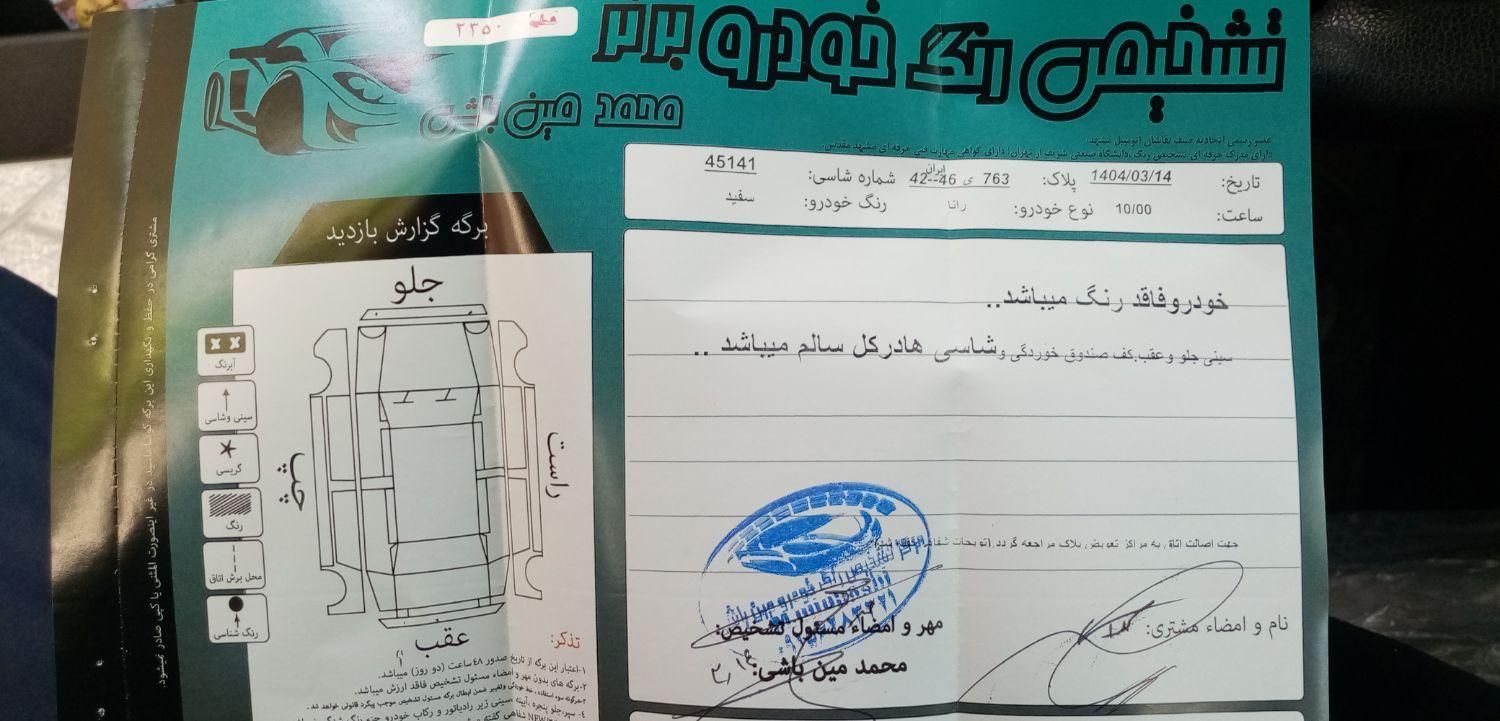 تشخیص رنگ خودرو برتر
محمد مین باشی
۲۳۵۰
عضو رسمی اتحادیه صنف نقاشان اتومبیل مشهد
دارای مدرک حرفه ای تشخیص رنگ ،دانشگاه صنعتی شریف از تهران؛ دارای گواهی مهارت فنی حرفه ای مشهد مقدس
تاریخ: 1404/03/14 پلاک: 763 ی 46--42 ایران شماره شاسی: 45141
ساعت: 10/00 نوع خودرو: رانا رنگ خودرو: سفید
خودروفاقد رنگ میباشد..
سینی جلو وعقب.کف صندوق خوردگی وشاسی هادرکل سالم میباشد ..
جهت اصالت اتاق به مراکز تعویض پلاک مراجعه گردد
مهر و امضاء مسئول تشخیص:
محمد مین باشی:
نام و امضاء مشتری:
برگه گزارش بازدید
جلو
راست
چپ
عقب
آبرنگ
سینی وشاسی
گریسی
رنگ
محل برش اتاق
رنگ شناسی
تذکر:
۱-اعتبار این برگه از تاریخ صدور ۴۸ساعت (دو روز) میباشد.
۲-برگه های بدون مهر و امضاء مسئول تشخیص فاقد ارزش میباشد.
۴- سپر،جلو پنجره، آیینه ،سینی زیر رادیاتور و رکاب خودرو
مشتری گرامی در حفظ و نگهداری این برگه کوشا باشید در غیر اینصورت المثنی یا کپی صادر نمیشود.